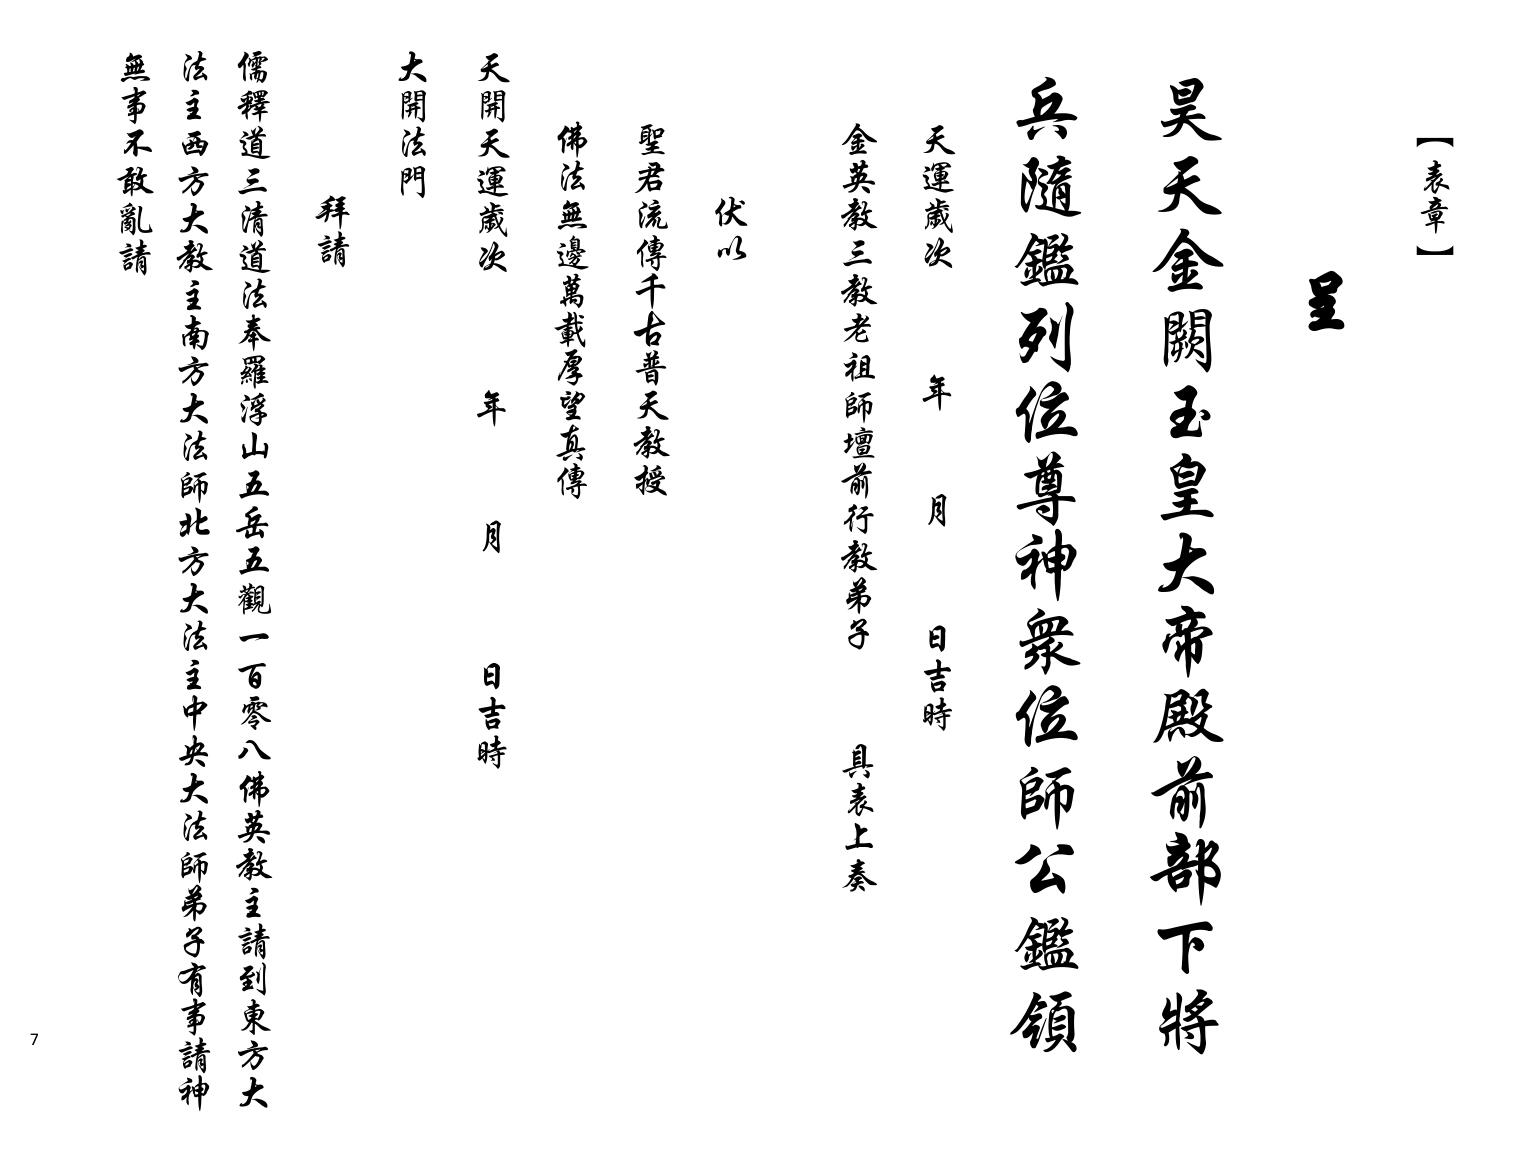 【表章】
呈
昊天金闕玉皇大帝殿前部下將
兵隨鑑列位尊神衆位師公鑑領
天運歲次 年 月 日吉時
金英教三教老祖師壇前行教弟子 具表上奏
伏以
聖君流傳千古普天教授
佛法無邊萬載厚望真傳
天開天運歲次 年 月 日吉時
大開法門
拜請
儒釋道三清道法奉羅浮山五岳五觀一百零八佛英教主請到東方大
法主西方大教主南方大法師北方大法主中央大法師弟子有事請神
無事不敢亂請
7